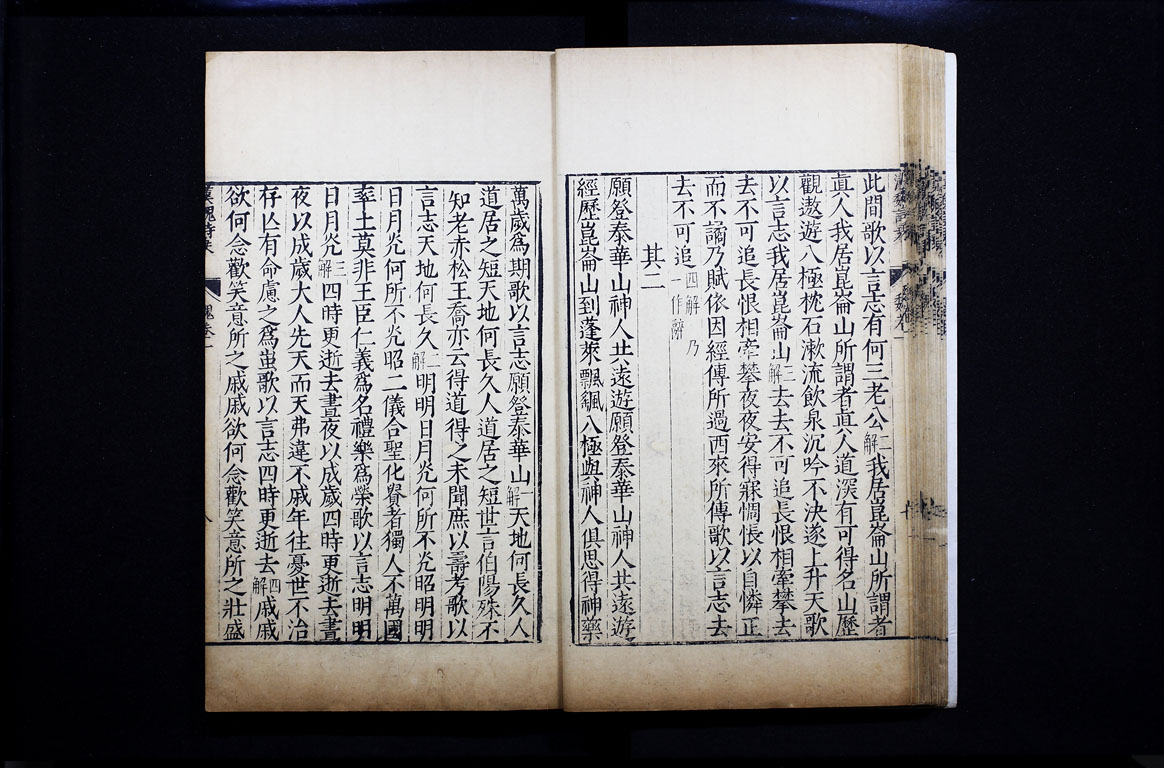 此間歌以言志有何三老公二解我居崑崙山所謂者
眞人我居崑崙山所謂者眞人道深有可得名山歷
觀遨遊八極枕石漱流飲泉沉吟不決遂上升天歌
以言志我居崑崙山三解去去不可追長恨相牽攀去
去不可追長恨相牽攀夜夜安得寐惆悵以自憐正
而不譎乃賦依因經傳所過西來所傳歌以言志去
去不可追四解乃一作辭
其二
願登泰華山神人共遠遊願登泰華山神人共遠遊
經歷崑崙山到蓬萊飄颻八極與神人俱思得神藥
萬歲爲期歌以言志願登泰華山一解天地何長久人
道居之短天地何長久人道居之短世言伯陽殊不
知老赤松王喬亦云得道得之未聞庶以壽考歌以
言志天地何長久二解明明日月光何所不光昭明明
日月光何所不光昭二儀合聖化貴者獨人不萬國
率土莫非王臣仁義爲名禮樂爲榮歌以言志明明
日月光三解四時更逝去晝夜以成歲四時更逝去晝
夜以成歲大人先天而天弗違不戚年往憂世不治
存亡有命慮之爲蚩歌以言志四時更逝去四解戚戚
欲何念歡笑意所之戚戚欲何念歡笑意所之壯盛
漢魏詩乘
魏卷一
八